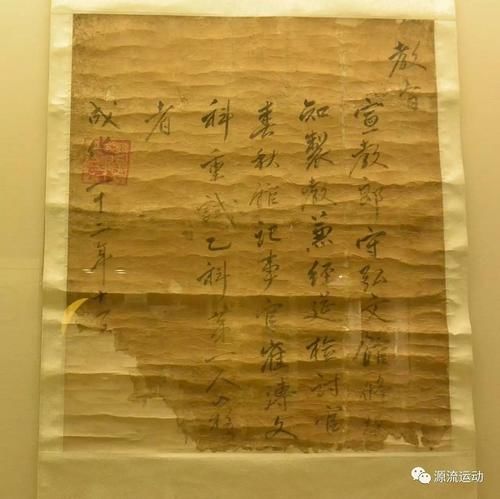 教旨
宣教郎守弘文館修撰
知製教兼經筵檢討官
春秋館記事官崔溥文
科重試乙科第一人
者
成化二十二年十
源流运动